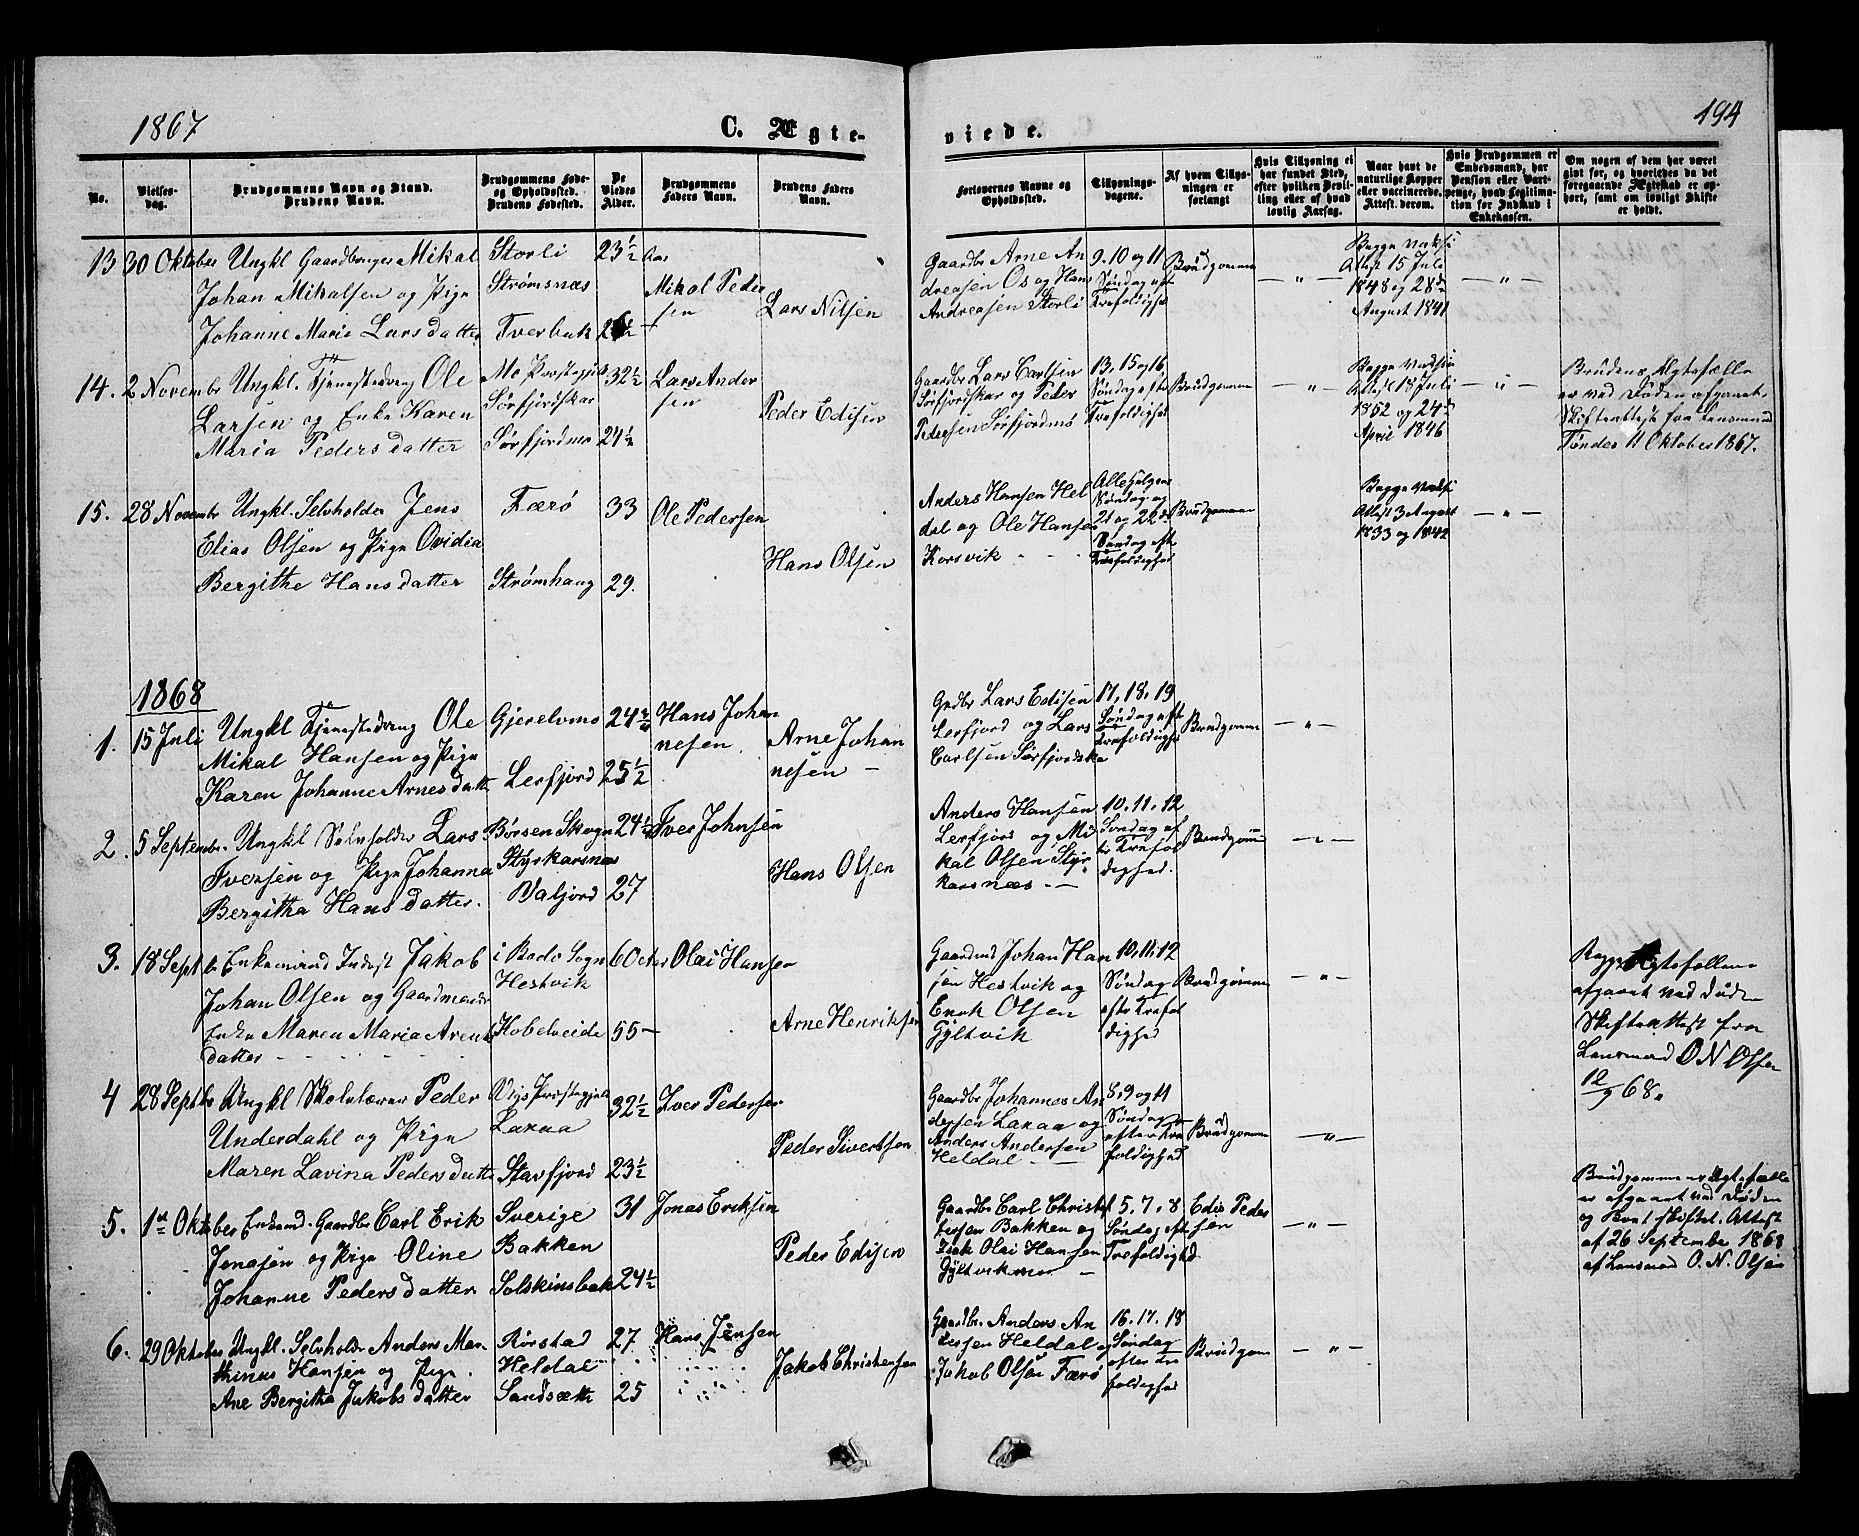 1867
C. Ægte-
viede.
194
No.
Vielses-
dag.
Brudgommens Navn og Stand.
Brudens Navn.
Brudgommens Føde-
og Opholdssted.
Brudens Fødested.
De
Viedes
Alder.
Brudgommens
Faders Navn.
Brudens Faders
Navn.
Forlovernes Navne og
Opholdssted.
Tillysnings-
dagene.
Af hvem Tillys-
ningen er
forlangt
Hvis Tillysning ei
har fundet Sted,
efter hvilken Bevil-
ling eller af hvad
lovlig Aarsag.
Naar havt de
naturlige Kopper
eller vaccinerede.
Attest. derom.
Hvis Brudgommen er
Embedsmand, har
Pension eller Vart-
penge, hvad Legitima-
tion for Indskud i
Enkekassen.
Om nogen af dem har været
givt før, og hvorledes da det
foregaaende Ægteskab er op-
hørt, samt om lovligt Skifte
er holdt.
13 30 Oktober Ungkl Gaardbruger Mikal
Johan Mikalsen og Pige
Johanne Marie Larsdatter
Storli
Strømsnæs
Tverbak
23 1/2 Aar
Mikal Peder
sen
Lars Nilsen
Gaardbr Arne An
dreasen Os og Hans
Andreasen Storli
9. 10 og 11
Søndag eft
Trefoldighed
Brudgommen
— „ —
Begge vaksi
Attest 15 Juli
1848 og 28de
August 1841
— „ —
14. 2 November Ungkl. Tjenestedreng Ole
Larsen og Enke Karen
Maria Pedersdatter
Mo Præstegjeld
Sørfjordskar
Sørfjordmo
32 1/2
24 1/2
Lars Ander
sen
Peder Edisen
Gaardbr Lars Carlsen
Sørfjordskar og Peder
Pedersen Sørfjordmo
13, 15 og 16
Søndag efter
Trefoldighed
Brudgommen
— „ —
Begge vaksi
Attest 18 Juli
1852 og 24de
April 1846
— „ —
Brudens Ægtefælle
er ved Døden afgaaet.
Skifteattest fra Lensmand
Tønder 11 Oktober 1867.
15. 28 Novembr Ungkl. Selvholder Jens
Elias Olsen og Pige Ovidia
Bergithe Hansdatter
Færø
Strømhaug
33
29.
Ole Pedersen
Hans Olsen
Anders Hansen Hel
dal og Ole Hansen
Korsvik - -
Allehelgens
Søndag og
21 og 22de
Søndag eft
Trefoldighed
Brudgommen
— „ —
Begge vaksi
Attest 3 August
1833 og 1842
— „ —
1868
1. 15 Juli Ungkl Tjenestedreng Ole
Mikal Hansen og Pige
Karen Johanne Arnesdatte
Gjerelvmo
Lerfjord
24 3/4
25 1/2
Hans Johan
nesen
Arne Johan
nesen —
Grdbr Lars Edisen
Lerfjord og Lars
Carlsen Sørfjordska
17, 18, 19
Søndag eft
Trefoldighed
Brudgommen
— „ —
2. 5 Septembr. Ungkl Selvholder Lars
Iversen og Pige Johanna
Bergitha Hansdatter.
Børsen Skogn
Styrkarsnæs
Valjord
24 1/2
27
Iver Johnsen
Hans Olsen
Anders Hansen
Lerfjord og Mi
kal Olsen Styr
karsnæs —
10. 11. 12
Søndag ef
ter Trefol
dighed.
Brudgomm
— „ —
3. 18 Septbr Enkemand Inderst Jakob
Johan Olsen og Gaardmands
Enke Maren Maria Arent
datter - - - -
i Bodo Sogn
Hestvik
Kobelveide
60 aar
55 —
Olai Hansen
Arne Henriksen
Gaardmd Johan Han
sen Hestvik og
Enok Olsen
Gyltvik
10, 11, 12
Søndag
efter Trefol
dighed
Brudgommen
— „ —
Begge Ægtefæller
afgaaet ved Døden
Skifteattest fra
Lensmand O N Olsen
12/9 68.
4 28 Septbr Ungkl Skolelærer Peder
Underdahl og Pige
Maren Lavina Pedersdatte
Vigs Præstegjeld
Laxaa
Stavfjord
32 1/2
23 1/2
Iver Pedersen
Peder Sivertsen
Gaardbr Johannes An
dersen Laxaa og
Anders Andersen
Heldal —
8, 9 og 11
Søndag
efter Tre
foldighed
Brudgommen
— „ —
5. 1ste Oktober Enkemd. Gaardbr Carl Erik
Jonasen og Pige Oline
Johanne Pedersdatter
Sverige
Bakken
Solskinsbak
31
24 1/2
Jonas Eriksen
Peder Edisen
Gaardbr Carl Christof
fersen Bakken og
Olai Hansen
Gyltvikmo —
5. 7. 8
Søndag eft
Trefoldighd
Edis Peder
sen
— „ —
Brudgommens Ægtefælle
er afgaaet ved Døden
og Boet skiftet. Attest
af 26 September 1868
af Lensmand O. N. Olsen
6. 29 Oktober Ungkl. Selvholder Anders Mar
thinus Hansen og Pige
Ane Bergitha Jakobsdatter
Rørstad
Heldal
Sandsætt
27
25
Hans Jensen
Jakob Christensen
Gaardbr. Anders An
dersen Heldal og
Jakob Olsen Færø
16. 17. 18
Søndag
efter Tre
foldighed
Brudgom
— „ —